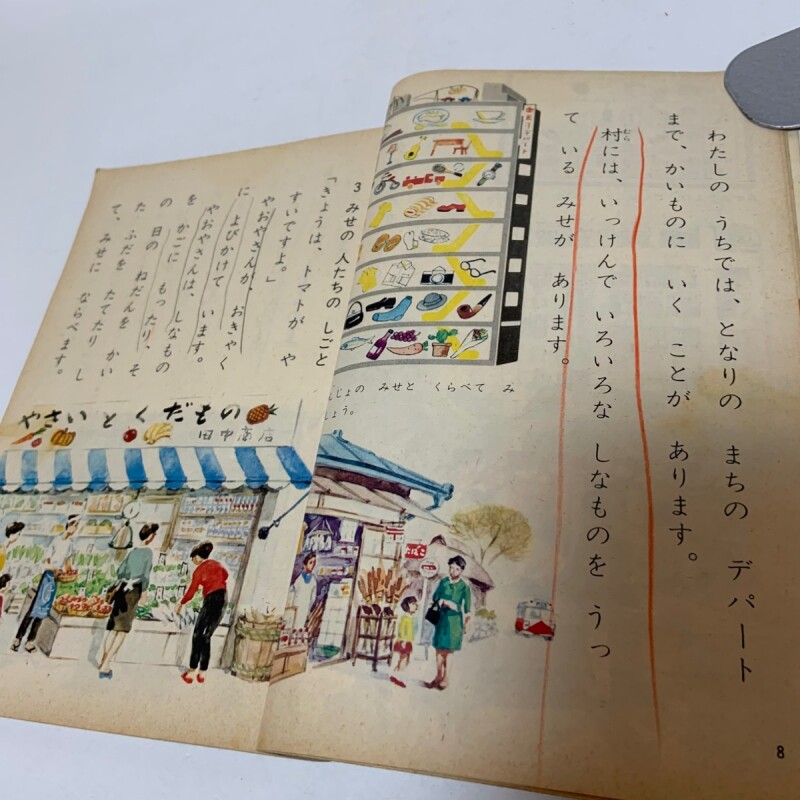 わたしの うちでは、となりの まちの デパート
まで、かいものに いく ことが あります。
村には、いっけんで いろいろな しなものを うっ
て いる みせが あります。
むら
みせと くらべて み
8
たばこ
3 みせの 人たちの しごと
「きょうは、トマトが や
すいですよ。」
やおやさんが おきゃく
に よびかけて います。
やおやさんは、しなもの
を かごに もったり、そ
の 日の ねだんを かい
た ふだを たてたり し
て、みせに ならべます。
やさい と くだもの
田中商店